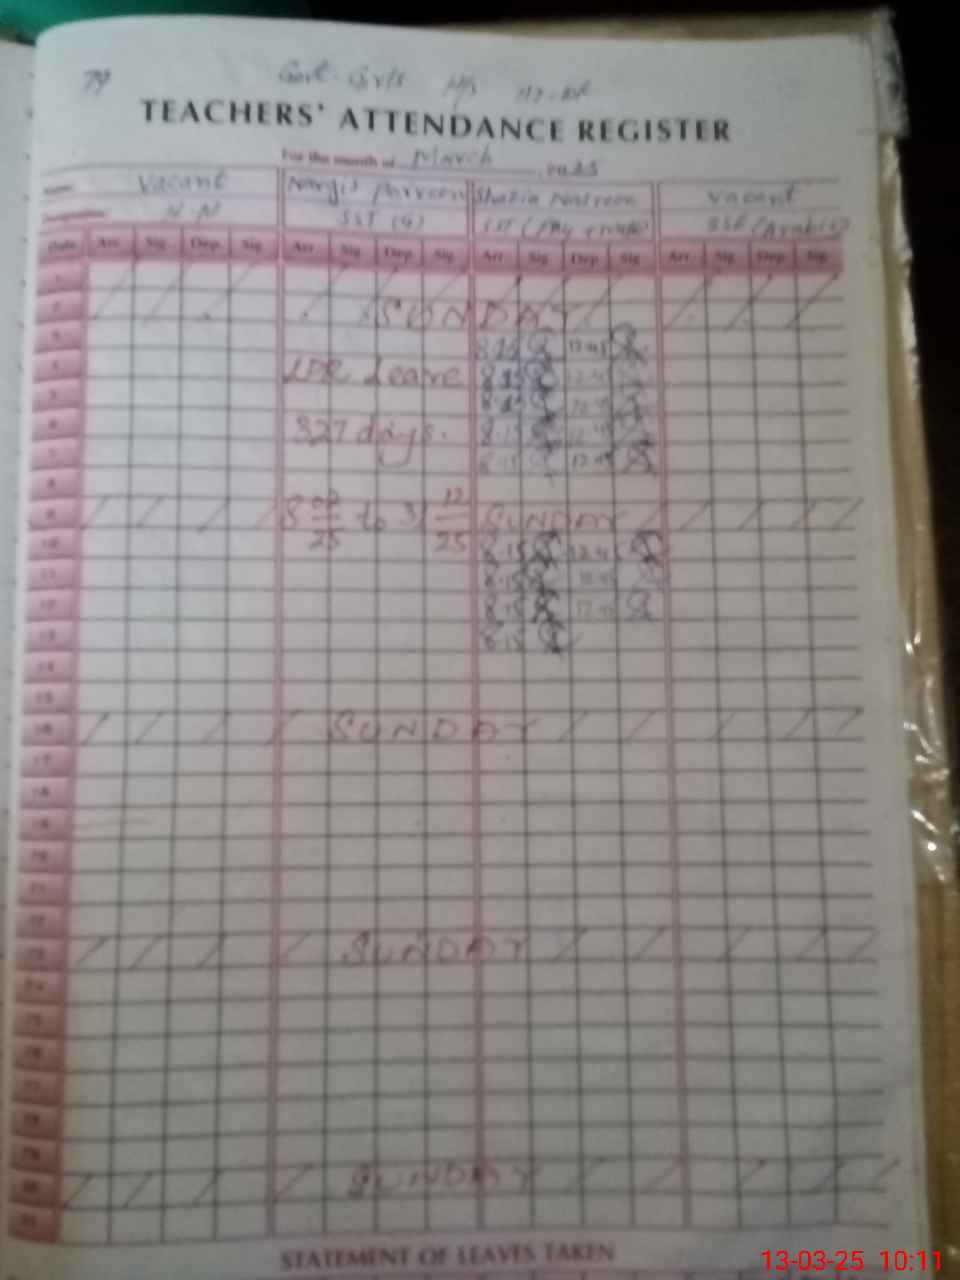 79
Govt. Girls H/S
TEACHERS' ATTENDANCE REGISTER
For the month of March
Name Vacant Nargis Parveen Shazia Nasreen Vacant
Designation SST (G)
Date Arr. Sig. Dep. Sig. Arr Sig. Dep. Sig. Arr. Sig. Dep. Sig. Arr. Sig. Dep. Sig.
1
2 SUNDAY
3 8.15 12.45
4 LPR Leave 8.15 12.45
5 8.15 12.45
6 327 days. 8.15 12.45
7 8.15 12.45
8
9 8 02/25 to 31 12/25 SUNDAY
10 8.15 12.45
11 8.15 12.45
12 8.15 12.45
13 8.15
14
15
16 SUNDAY
17
18
19
20
21
22
23 SUNDAY
24
25
26
27
28
29
30 SUNDAY
31
STATEMENT OF LEAVES TAKEN
13-03-25 10:11